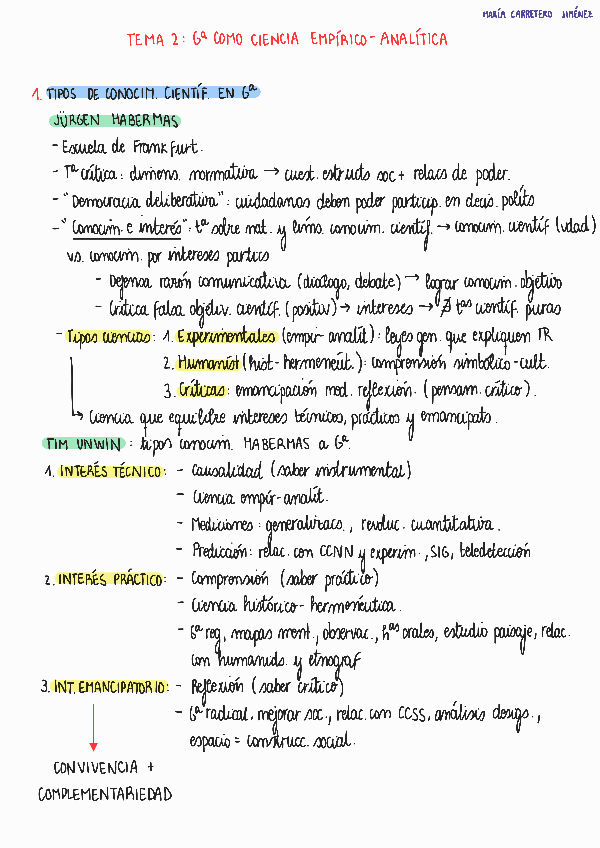 MARÍA CARRETERO JIMÉNEZ
TEMA 2: Gª COMO CIENCIA EMPÍRICO-ANALÍTICA
1. TIPOS DE CONOCIM. CIENTÍF. EN Gª
JÜRGEN HABERMAS
- Escuela de Frankfurt.
- Tª crítica: dimens. normativa → cuest. estructs soc + relacs de poder.
- "Democracia deliberativa": ciudadanos deben poder particip. en decis. políts
- "Conocim. e interés": tª sobre nat. y líms. conocim. científ. → conocim. científ (vdad)
vs. conocim. por intereses partics
- Defensa razón comunicativa (diálogo, debate) → lograr conocim. objetivo
- Crítica falsa objetiv. científ. (positiv) → intereses → ∄ tªs científ. puras
- Tipos ciencias: 1. Experimentales (empír-analít): leyes gen. que expliquen TR
2. Humaníst (hist-hermenéut.): comprensión simbólico-cult.
3. Críticas: emancipación med. reflexión. (pensam. crítico).
↳ Ciencia que equilibre intereses técnicos, prácticos y emancipats.
TIM UNWIN: tipos conocim. HABERMAS a Gª.
1. INTERÉS TÉCNICO: - Causalidad (saber instrumental)
- Ciencia empír-analít.
- Mediciones: generalizacs., revoluc. cuantitativa.
- Predicción: relac. con CCNN y experim., SIG, teledetección
2. INTERÉS PRÁCTICO: - Comprensión (saber práctico)
- Ciencia histórico-hermenéutica.
- Gª reg, mapas ment., observac., hªs orales, estudio paisaje, relac.
con humanids. y etnograf
3. INT. EMANCIPATORIO: - Reflexión (saber crítico)
- Gª radical, mejorar soc., relac. con CCSS, análisis desigs.,
espacio = construcc. social.
CONVIVENCIA +
COMPLEMENTARIEDAD